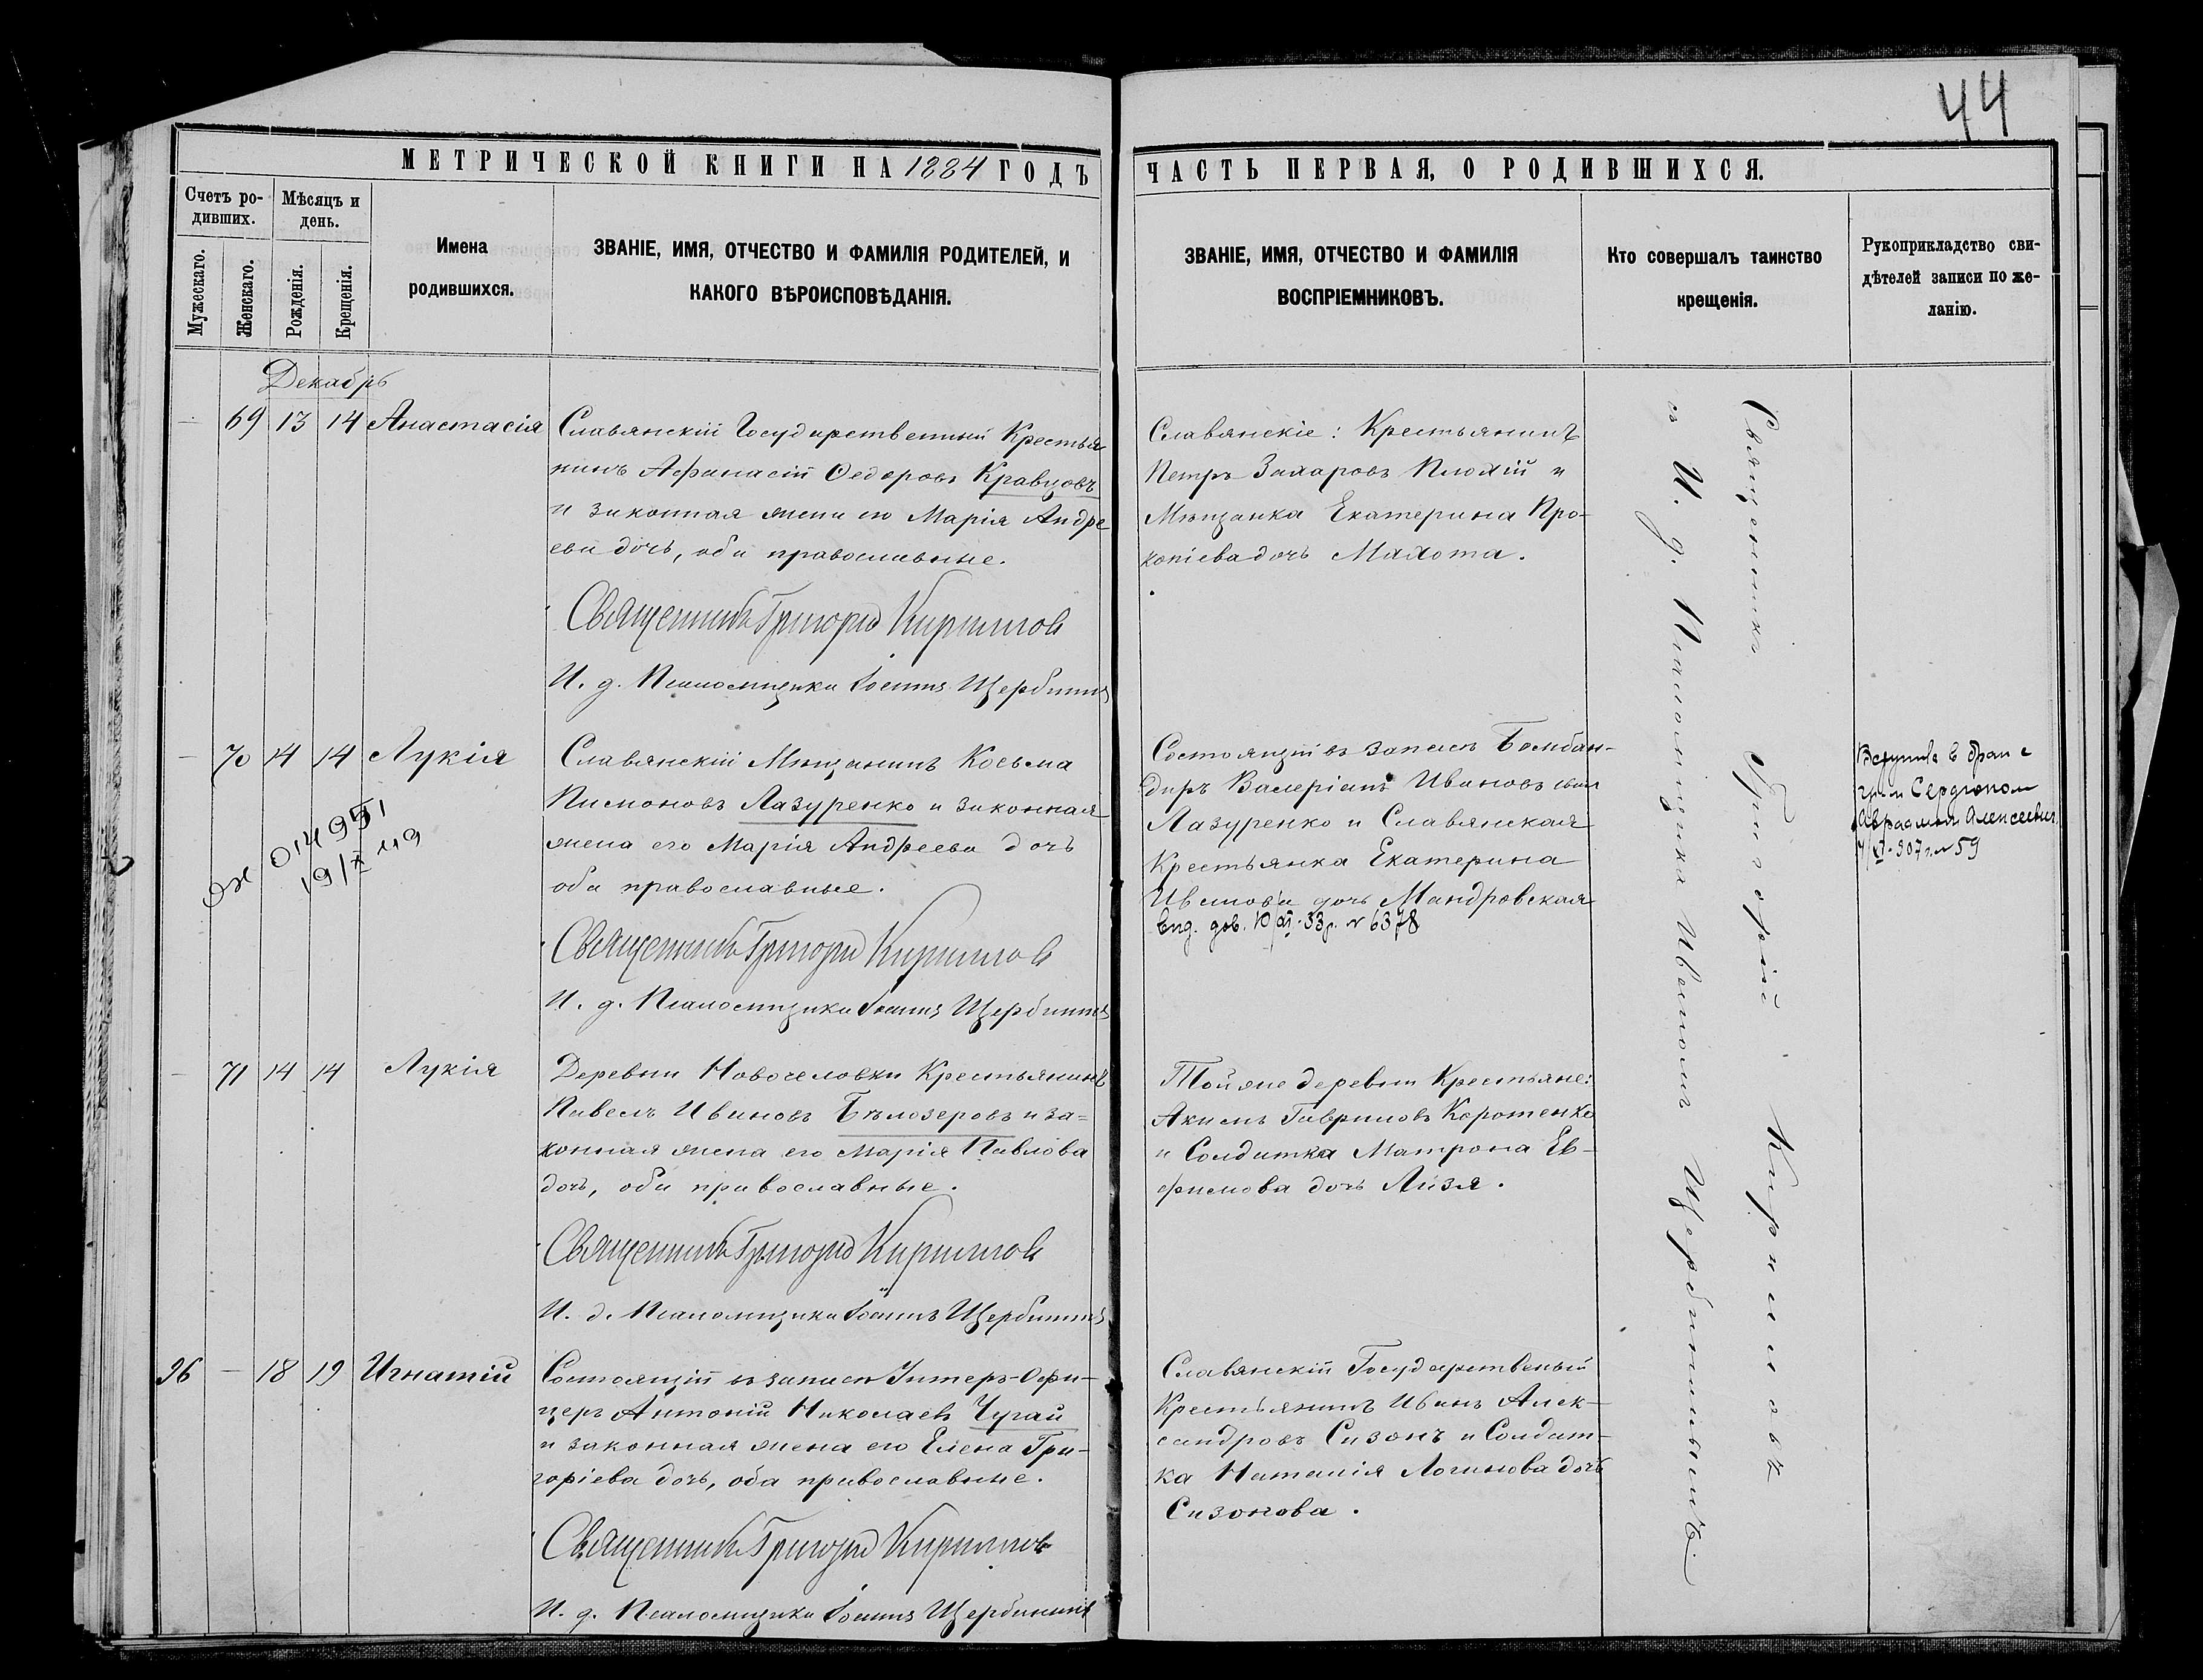 44
МЕТРИЧЕСКОЙ КНИГИ НА 1884 ГОДЪ
ЧАСТЬ ПЕРВАЯ, О РОДИВШИХСЯ.
Счетъ ро-
дивших.
Мужескаго.
Женскаго.
Мѣсяцъ и
день.
Рожденія.
Крещенія.
Имена
родившихся.
ЗВАНІЕ, ИМЯ, ОТЧЕСТВО И ФАМИЛІЯ РОДИТЕЛЕЙ, И
КАКОГО ВѢРОИСПОВѢДАНІЯ.
ЗВАНІЕ, ИМЯ, ОТЧЕСТВО И ФАМИЛІЯ
ВОСПРІЕМНИКОВЪ.
Кто совершалъ таинство
крещенія.
Рукоприкладство сви-
дѣтелей записи по же-
ланію.
Декабрь
— 69 13 14 Анастасія
Славянскій Государственный Крестья
нинъ Афанасій Ѳедоровъ Кравцовъ
и законная жена его Марія Андре
ева дочь, оба православные.
Священникъ Григорій Кирилловъ
И. д. Псаломщика Іоаннъ Щербининъ
Славянскіе: Крестьянинъ
Петръ Захаровъ и
Мѣщанка Екатерина Про-
копіева дочь Махота.
— 70 14 14 Лукія
014951
19/X 49
Славянскій Мѣщанинъ Косьма
Пимоновъ Лазуренко и законная
жена его Марія Андреева дочь
оба православные.
Священникъ Григорій Кирилловъ
И. д. Псаломщика Іоаннъ Щербининъ
Состоящій въ запасѣ Бомбан-
диръ Валеріанъ Ивановъ сынъ
Лазуренко и Славянская
Крестьянка Екатерина
Иванова дочь Мандровская
вид. дов. 10/XI-33р. № 6378
Вступила в брак с
Сердюком
Авраамом Алексеевич.
/XI-907 г. № 59
— 71 14 14 Лукія
Деревни Новоселовки Крестьянинъ
Павелъ Ивановъ Бѣлозеровъ и за=
конная жена его Марія Павлова
дочь, оба православные.
Священникъ Григорій Кирилловъ
И. д. Псаломщика Іоаннъ Щербининъ
Той же деревни Крестьяне:
Акимъ Гавриловъ Коротенко
и Солдатка Матрона Ев-
фимова дочь
96 — 18 19 Игнатій
Состоящій въ запасѣ Унтеръ-Офи-
церъ Антоній Николаевъ Чугай
и законная жена его Елена Гри-
горіева дочь, оба православные.
Священникъ Григорій Кирилловъ
И. д. Псаломщика Іоаннъ Щербининъ
Славянскій Государственый
Крестьянинъ Иванъ Алек-
сандровъ Сизонъ и Солдат-
ка Наталія Логинова дочь
Сизонова.
Священникъ Григорій Кирилловъ
съ И. д. Псаломщика Иваномъ Щербининымъ.